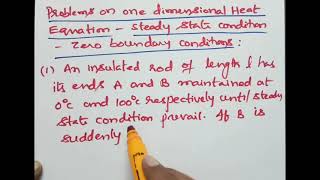 Problems on one dimensional Heat
Equation - Steady State condition
- Zero boundary conditions :
(1) An insulated rod of length l has
its ends A and B maintained at
0°c and 100°c respectively until steady
state condition prevail. If B is
suddenly